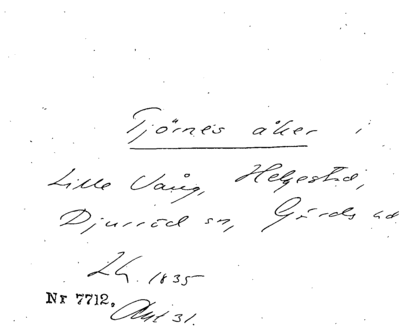 Tjörnes åker i
Lille Vång, Helgestad,
Djurröd sn, Gärds hd
Lh. 1835
Nr 7712, Akt 31.